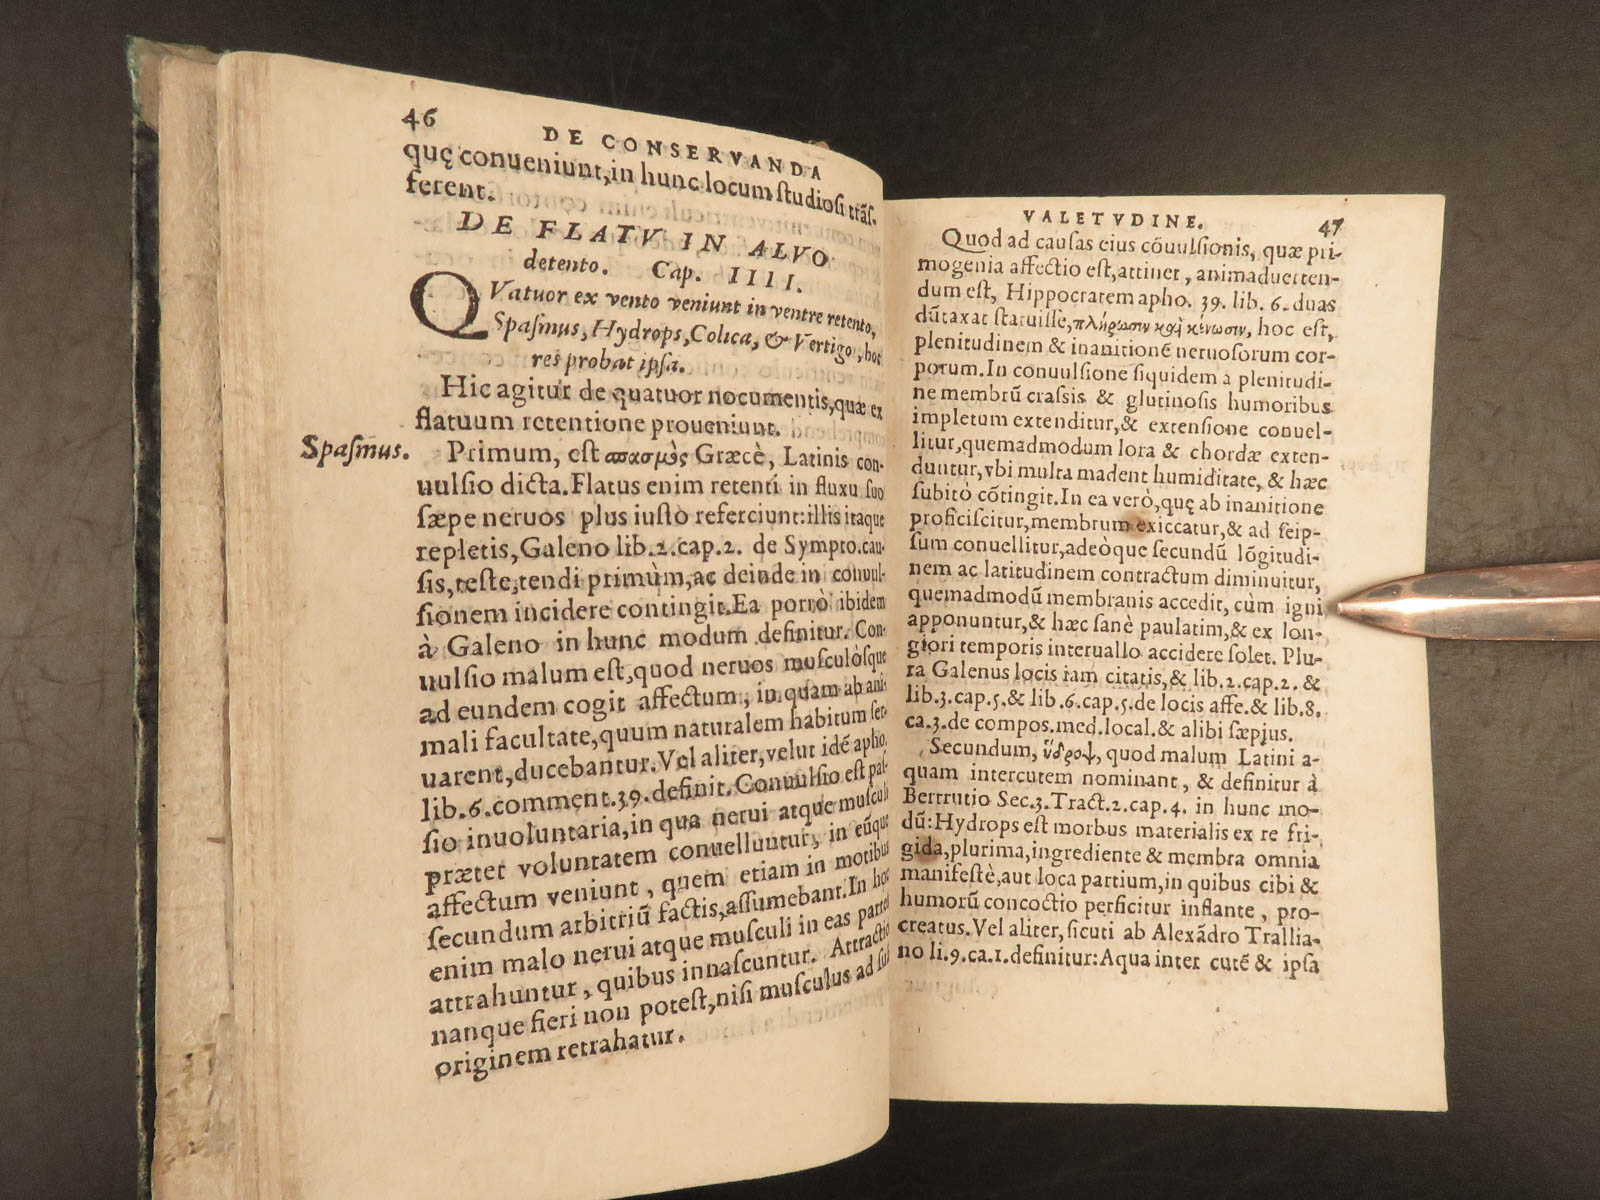 46
DE CONSERVANDA
quę conueniunt, in hunc locum studiosi trãs-
ferent.
DE FLATV IN ALVO
detento. Cap. IIII.
QVatuor ex vento veniunt in ventre retento,
Spasmus, Hydrops, Colica, & Vertigo, hoc
res probat ipsa.
Hic agitur de quatuor nocumentis, quæ ex
flatuum retentione proueniunt.
Spasmus.
Primum, est σπασμὸς Græcè, Latinis con-
uulsio dicta. Flatus enim retenti in fluxu suo
sæpe neruos plus iusto referciunt: illis itaque
repletis, Galeno lib. 2. cap. 2. de Sympto. cau-
sis, teste, tendi primùm, ac deinde in conuul-
sionem incidere contingit. Ea porrò ibidem
à Galeno in hunc modum definitur. Con-
uulsio malum est, quod neruos musculósque
ad eundem cogit affectum, in quam ab ani-
mali facultate, quum naturalem habitum ser-
uarent, ducebantur. Vel aliter, velut idẽ apho.
lib. 6. comment. 39. definit. Conuulsio est pas-
sio inuoluntaria, in qua nerui atque musculi
præter voluntatem conuelluntur, in eũque
affectum veniunt, quem etiam in motibus
secundum arbitriũ factis, assumebant. In hoc
enim malo nerui atque musculi in eas partes
attrahuntur, quibus innascuntur. Attractio
nanque fieri non potest, nisi musculus ad sui
originem retrahatur.
VALETVDINE.
47
Quod ad causas eius cõuulsionis, quæ pri-
mogenia affectio est, attinet, animaduerten-
dum est, Hippocratem apho. 39. lib. 6. duas
dũtaxat statuisse, πλήρωσιν καὶ κένωσιν, hoc est,
plenitudinem & inanitionẽ neruosorum cor-
porum. In conuulsione siquidem à plenitudi-
ne membrũ crassis & glutinosis humoribus
impletum extenditur, & extensione conuel-
litur, quemadmodum lora & chordæ exten-
duntur, vbi multa madent humiditate, & hæc
subitò cõtingit. In ea verò, quę ab inanitione
proficiscitur, membrum exiccatur, & ad seip-
sum conuellitur, adeòque secundũ lõgitudi-
nem ac latitudinem contractum diminuitur,
quemadmodũ membranis accedit, cùm igni
apponuntur, & hæc sanè paulatim, & ex lon-
giori temporis interuallo accidere solet. Plu-
ra Galenus locis iam citatis, & lib. 2. cap. 2. &
lib. 3. cap. 5. & lib. 6. cap. 5. de locis affe. & lib. 8.
ca. 3. de compos. med. local. & alibi sæpius.
Secundum, ὕδροψ, quod malum Latini a-
quam intercutem nominant, & definitur à
Bertrutio Sec. 3. Tract. 2. cap. 4. in hunc mo-
dũ: Hydrops est morbus materialis ex re fri-
gida, plurima, ingrediente & membra omnia
manifestè, aut loca partium, in quibus cibi &
humorũ concoctio perficitur inflante, pro-
creatus. Vel aliter, sicuti ab Alexãdro Trallia-
no li. 9. ca. 1. definitur: Aqua inter cutẽ & ipsa